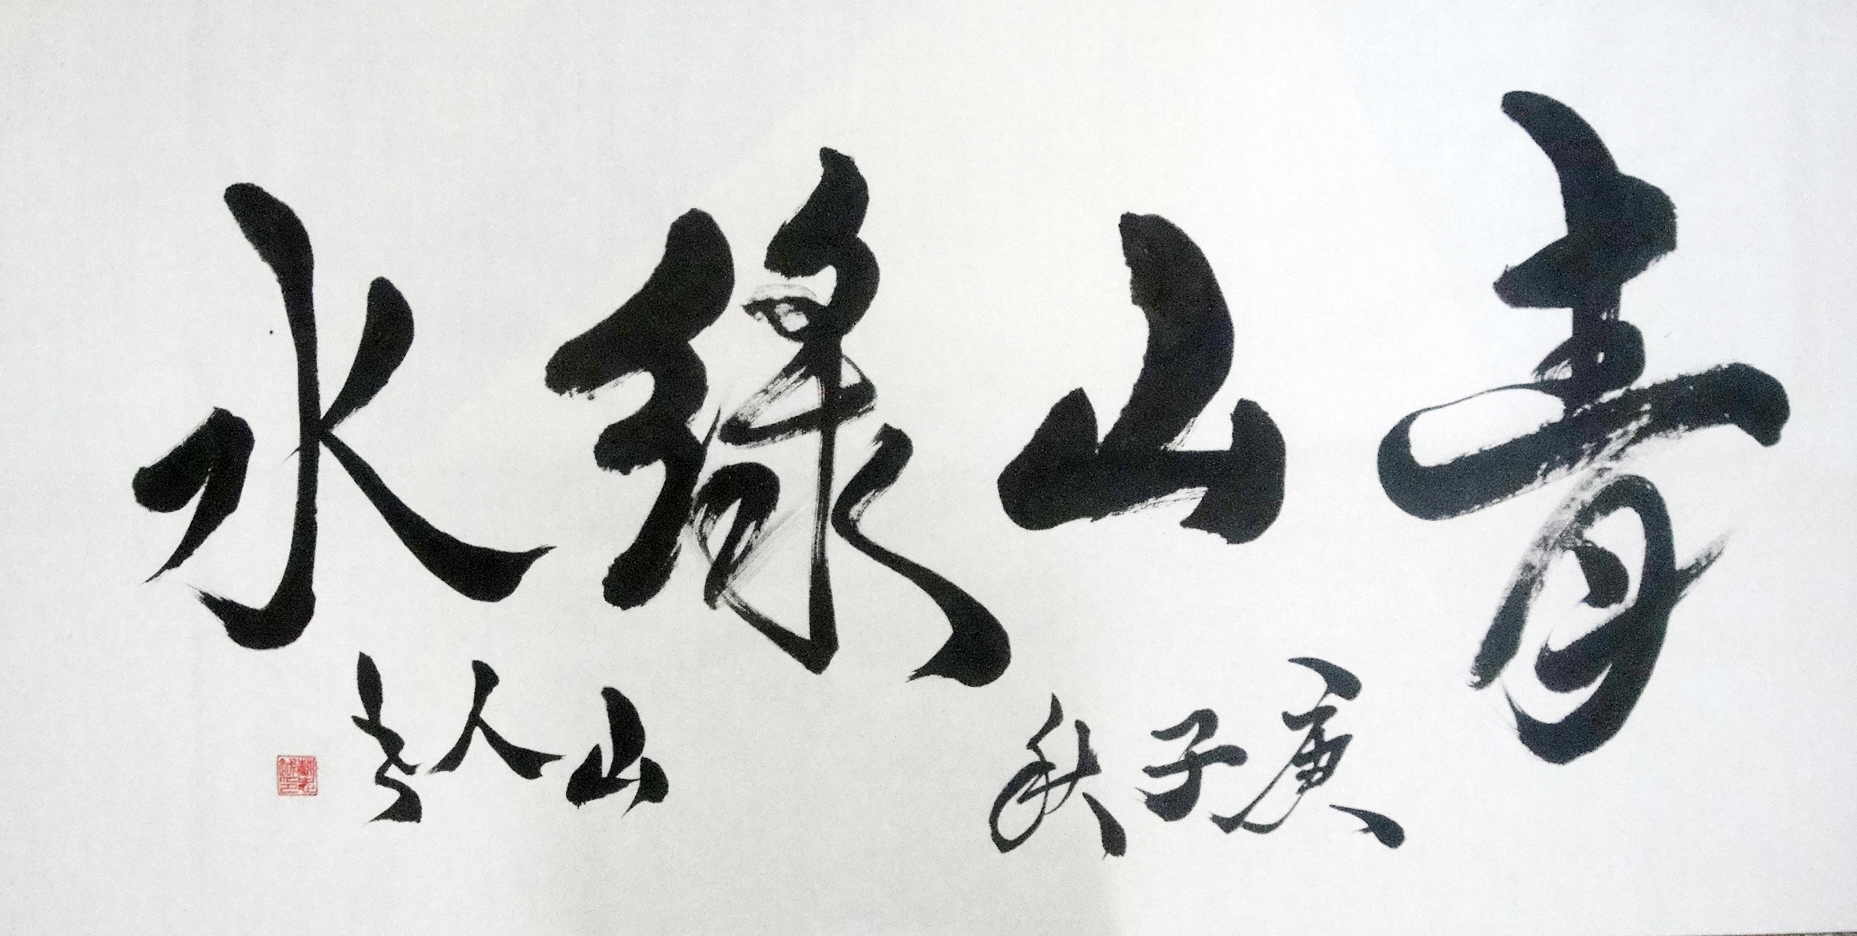 青山綠水
庚子秋
山人書